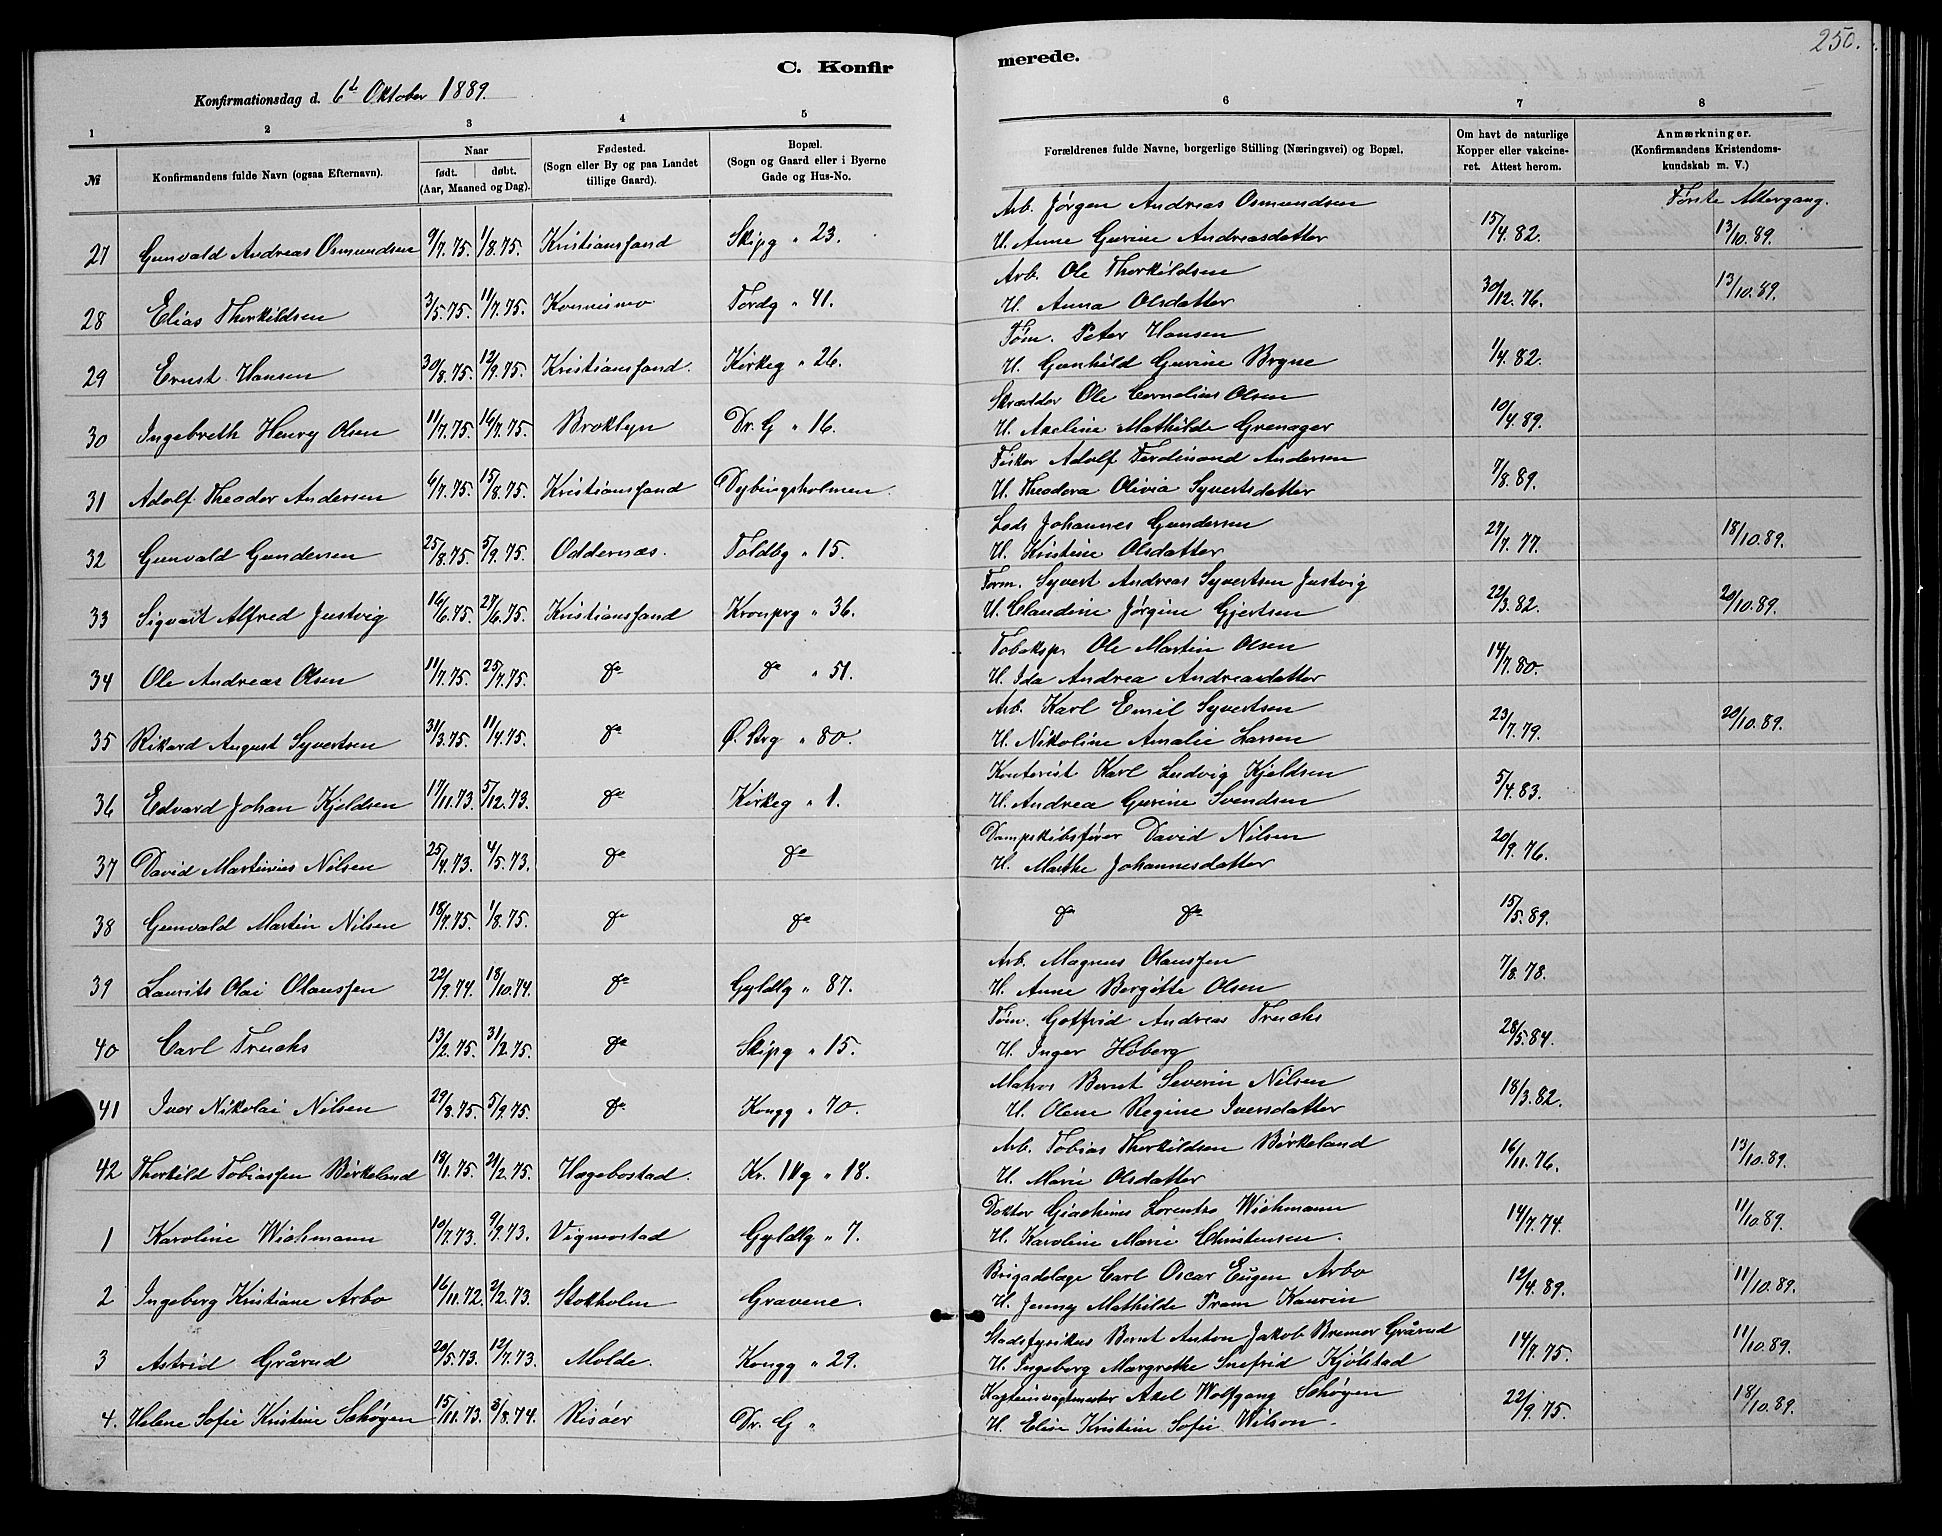 250.
C. Konfir
merede.
Konfirmationsdag d. 6t Oktober 1889.
1 2 3 4 5 6 7 8
№ Konfirmandens fulde Navn (ogsaa Efternavn). Naar født. døbt. (Aar, Maaned og Dag). Fødested. (Sogn eller By og paa Landet tillige Gaard). Bopæl. (Sogn og Gaard eller i Byerne Gade og Hus-No. Forældrenes fulde Navne, borgerlige Stilling (Næringsvei) og Bopæl. Om havt de naturlige Kopper eller vakcineret. Attest herom. Anmærkninger. (Konfirmandens Kristendomskundskab m. V.)
Første Altergang.
Arb. Jørgen Andreas Osmundsen
27 Gunvald Andreas Osmundsen 9/7.75. 1/8.75. Kristianssand Skipg " 23. H. Anne Gurine Andreasdatter 15/4.82. 13/10.89.
Arb. Ole Thorkildsen
28 Elias Thorkildsen 3/5.75. 11/7.75. Kvinesmo Tordg " 41. H. Anna Olsdatter 30/12.76. 13/10.89.
Tøm. Peter Hansen
29 Ernst Hansen 30/8.75. 12/9.75. Kristianssand. Kirkeg " 26. H. Gunhild Gurine Bryne 1/4.82.
Skrædder Ole Cornelius Olsen
30 Ingebreth Henry Olsen 11/7.75. 16/7.75. Broklyn Dr. G " 16. H. Axeline Mathilde Grenager 10/4.89.
Fisker Adolf Ferdinand Andersen
31 Adolf Theodor Andersen 6/7.75. 15/8.75. Kristianssand Dybingsholmen. H. Theodora Olivia Syvertsdatter 7/8.89.
Lods Johannes Gundersen
32 Gunvald Gundersen 25/8.75. 5/9.75. Oddernæs. Toldbg " 15. H. Kristine Olsdatter 27/7.77. 18/10.89.
Form. Syvert Andreas Syvertsen Justvig
33 Sigvart Alfred Justvig 16/6.75. 27/6.75. Kristianssand Kronprg " 36. H. Claudine Jørgine Gjertsen 22/3.82. 20/10.89.
Tobaksp. Ole Martin Olsen
34 Ole Andreas Olsen 11/7.75. 25/7.75. do do " 51. H. Ida Andrea Andreasdatter 14/7.80.
Arb. Karl Emil Syvertsen
35 Rikard August Syvertsen 31/3.75. 11/4.75. do Ø. Strg " 80. H. Nikoline Amalie Larsen 23/7.79. 20/10.89.
Kontorist Karl Ludvig Kjeldsen
36 Edvard Johan Kjeldsen 17/11.73. 5/12.73. do Kirkeg " 1. H. Andrea Gurine Svendsen 5/4.83.
Dampskibsfører David Nilsen
37 David Martinius Nilsen 25/4.73. 4/5.73. do do H. Marthe Johannesdatter 20/9.76.
38 Gunvald Martin Nilsen 18/7.75. 1/8.75. do do do do 15/5.89.
Arb. Magnus Olaussen
39 Laurits Olai Olaussen 22/9.74. 18/10.74. do Gyldlg " 87. H. Anne Bergitte Olsen 7/8.78.
Tøm. Gotfrid Andreas Truchs
40 Carl Truchs 13/2.75. 31/2.75. do Skipg " 15. H. Inger Høberg 28/5.84.
Matros Bernt Severin Nilsen
41 Iver Nikolai Nilsen 29/8.75. 5/9.75. do Kongg " 70. H. Olene Regine Iversdatter 18/3.82.
Arb. Tobias Thorkildsen Birkeland
42 Thorkild Tobiassen Birkeland 18/1.75. 21/2.75. Hægebostad. Kr. IVg " 18. H. Marie Olsdatter 16/11.76. 13/10.89.
Doktor Giachims Lorentzo Wichmann
1 Karoline Wichmann 10/7.73. 9/9.73. Vigmostad Gyldlg " 7. H. Karoline Marie Christensen. 14/7.74. 11/10.89.
Brigadelæge Carl Oscar Eugen Arbo
2 Ingeborg Kristiane Arbo 16/11.72. 2/2.73. Stokholm Gravene. H. Jenny Mathilde Pram Kaurin 12/4.89. 11/10.89.
Stadsfysikus Bernt Anton Jakob Bremer Grårud
3 Astrid Grårud 20/5.73. 12/7.73. Molde. Kongg " 29. H. Ingeborg Margrethe Snefrid Kjølstad 14/7.75. 11/10.89.
Kapteinsvagtmester Axel Wolfgang Schøyen
4. Helene Sofie Kristine Schøyen 15/11.73. 3/8.74. Risöer Dr. G " H. Elise Kristine Sofie Wilson. 22/9.75. 18/10.89.